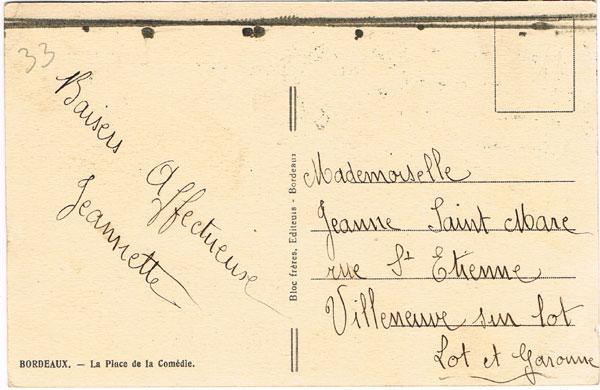 33
Baisers
Affectueuse
Jeannette
Mademoiselle
Jeanne Saint Marc
rue St Etienne
Villeneuve sur lot
Lot et Garonne
Bloc frères, Editeurs - Bordeaux
BORDEAUX. — La Place de la Comédie.